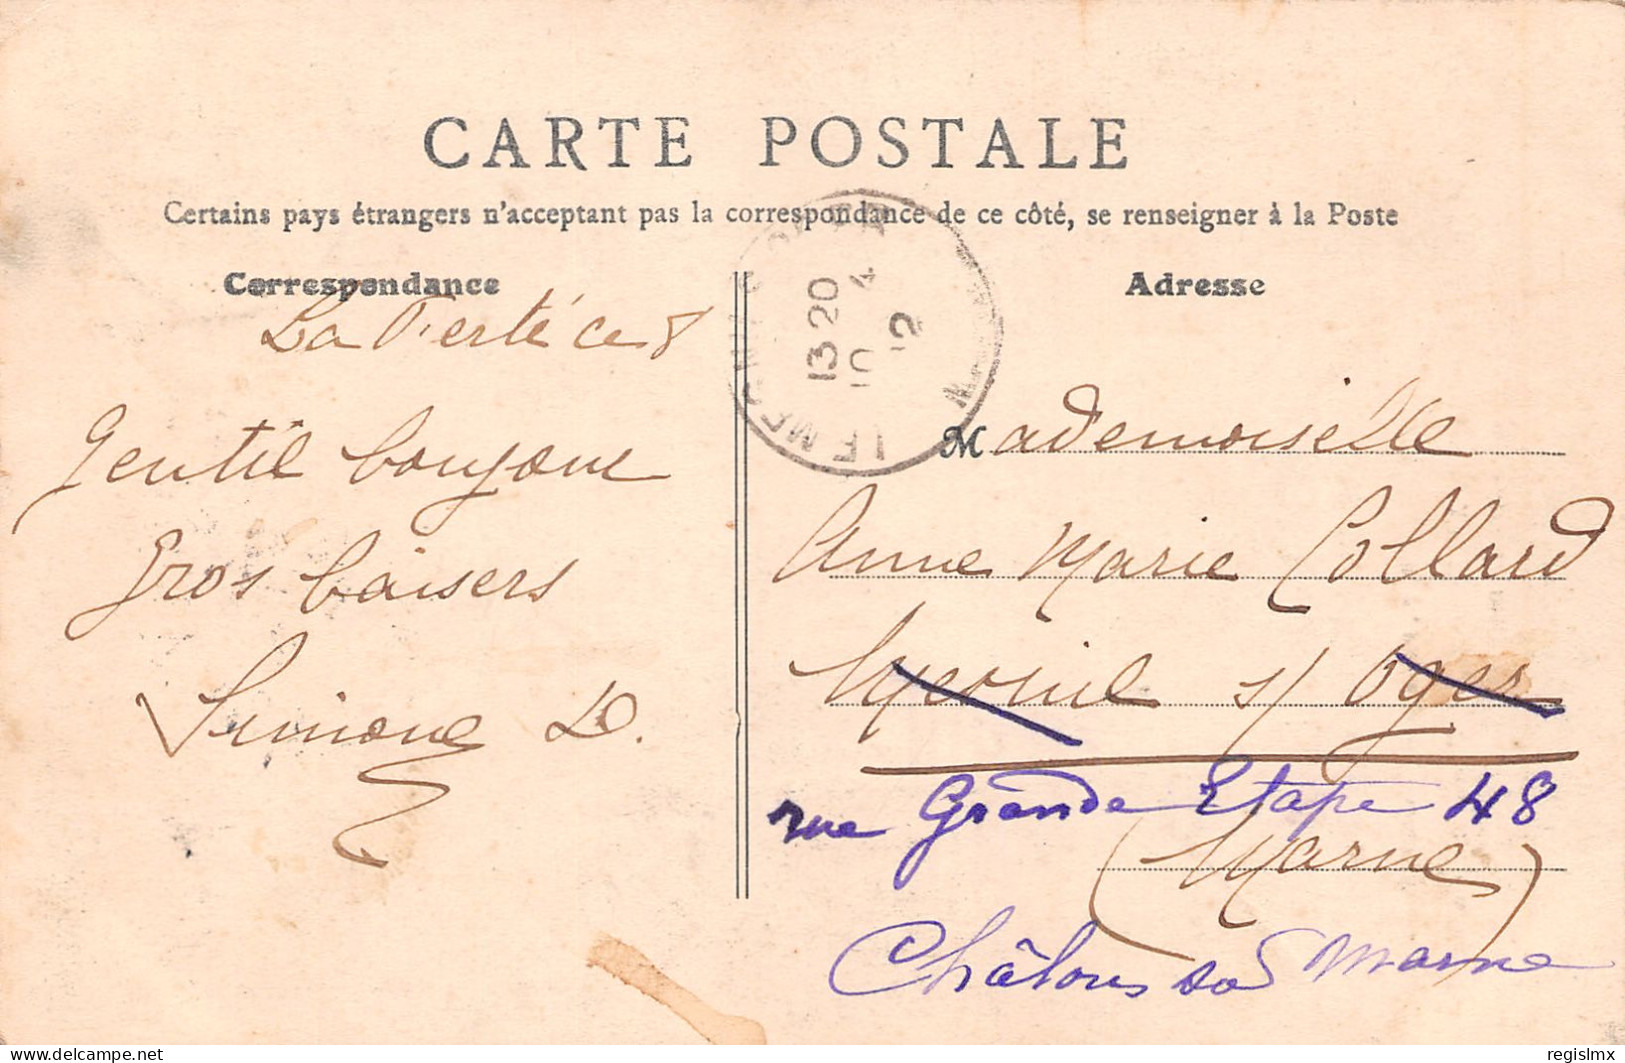 CARTE POSTALE
Certains pays étrangers n'acceptant pas la correspondance de ce côté, se renseigner à la Poste
Correspondance
La Ferté ce 8
Gentil bonjour
Gros baisers
Simone D.
13 20
10 4
12
LE MESNIL
Adresse
Mademoiselle
Anne Marie Collard
Mesnil s/ Oger
rue Grande Etape 48
(Marne)
Châlons s Marne
delcampe.net
regislmx